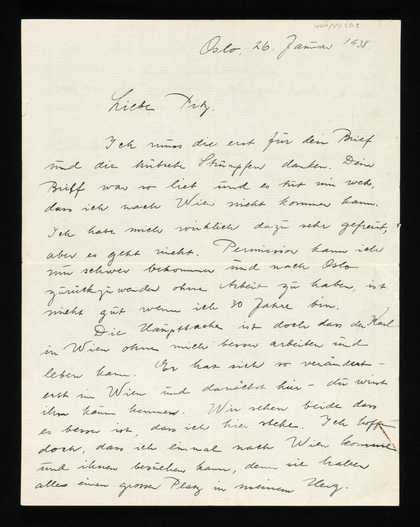 Oslo, 26. Januar 1938
Liebe
Ich muss dir erst für den Brief
und die hübsche Strümpfen danken. Dein
Brief war so lieb und es tut mir weh,
dass ich nach Wien nicht kommen kann.
Ich habe mich wirklich dazu sehr gefreut,
aber es geht nicht. Permission kann ich
nur schwer bekommen und nach Oslo
zurückzuwenden ohne Arbeit zu haben, ist
nicht gut wenn ich 30 Jahre bin.
Die Hauptsache ist doch dass der Karl
in Wien ohne mich besser arbeiten und
leben kann. Er hat sich so verändert -
erst in Wien und danächst hier - du wirst
ihm kaum kennen. Wir sehen beide dass
es besser ist, dass ich hier bleibe. Ich hoffe
doch, dass ich einmal nach Wien komme
und ihnen besuchen kann, denn sie haben
alles einen grossen Platz in meinem Herz.